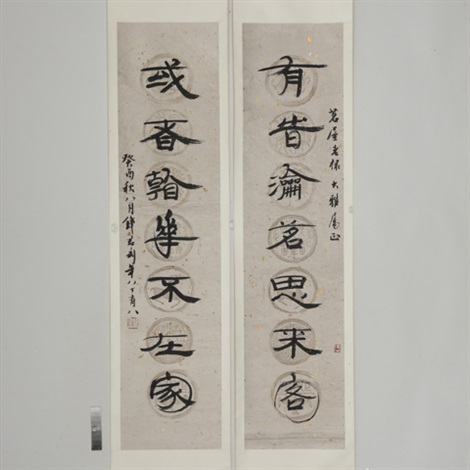 茗屋老棣 大雅屬正
有旹瀹茗思来客
或者看華不在家
癸酉秋八月錢君匋年八十有八